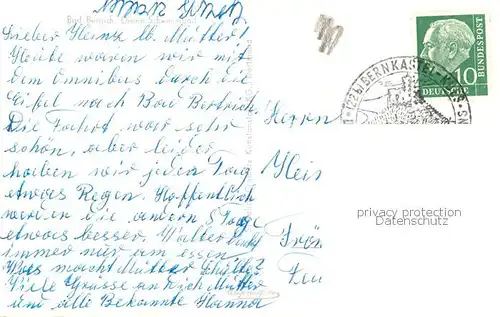 Bad Bertrich
Lieber Heinz u. Mutter!
Heute waren wir mit
dem Omnibus durch die
Eifel nach Bad Bertrich.
Die Fahrt war sehr
schön, aber leider
haben wir jeden Tag
etwas Regen. Hoffentlich
werden die andern 5 Tage
etwas besser. Walter
immer nur am essen.
Was macht Mutter Schulte?
Viele Grüsse an Dich Mutter
und alle Bekannte Hanna
Herrn
Hei
BERNKASTEL-KUES
10
DEUTSCHE
BUNDESPOST
privacy protection
Corporate Watermark